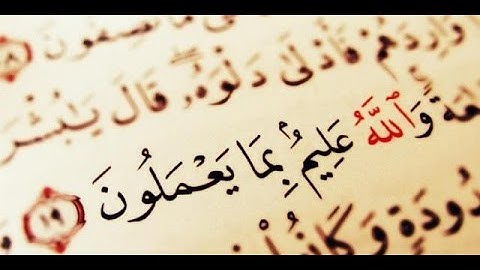 مَا تَصِفُونَ
وَارِدَهُمْ فَأَدْلَىٰ دَلْوَهُۥ ۖ قَالَ يَـٰبُشْرَ
ـعَةً وَٱللَّهُ عَلِيمٌۢ بِمَا يَعْمَلُونَ ١٩
ـدُودَةٍ وَكَانُوا۟